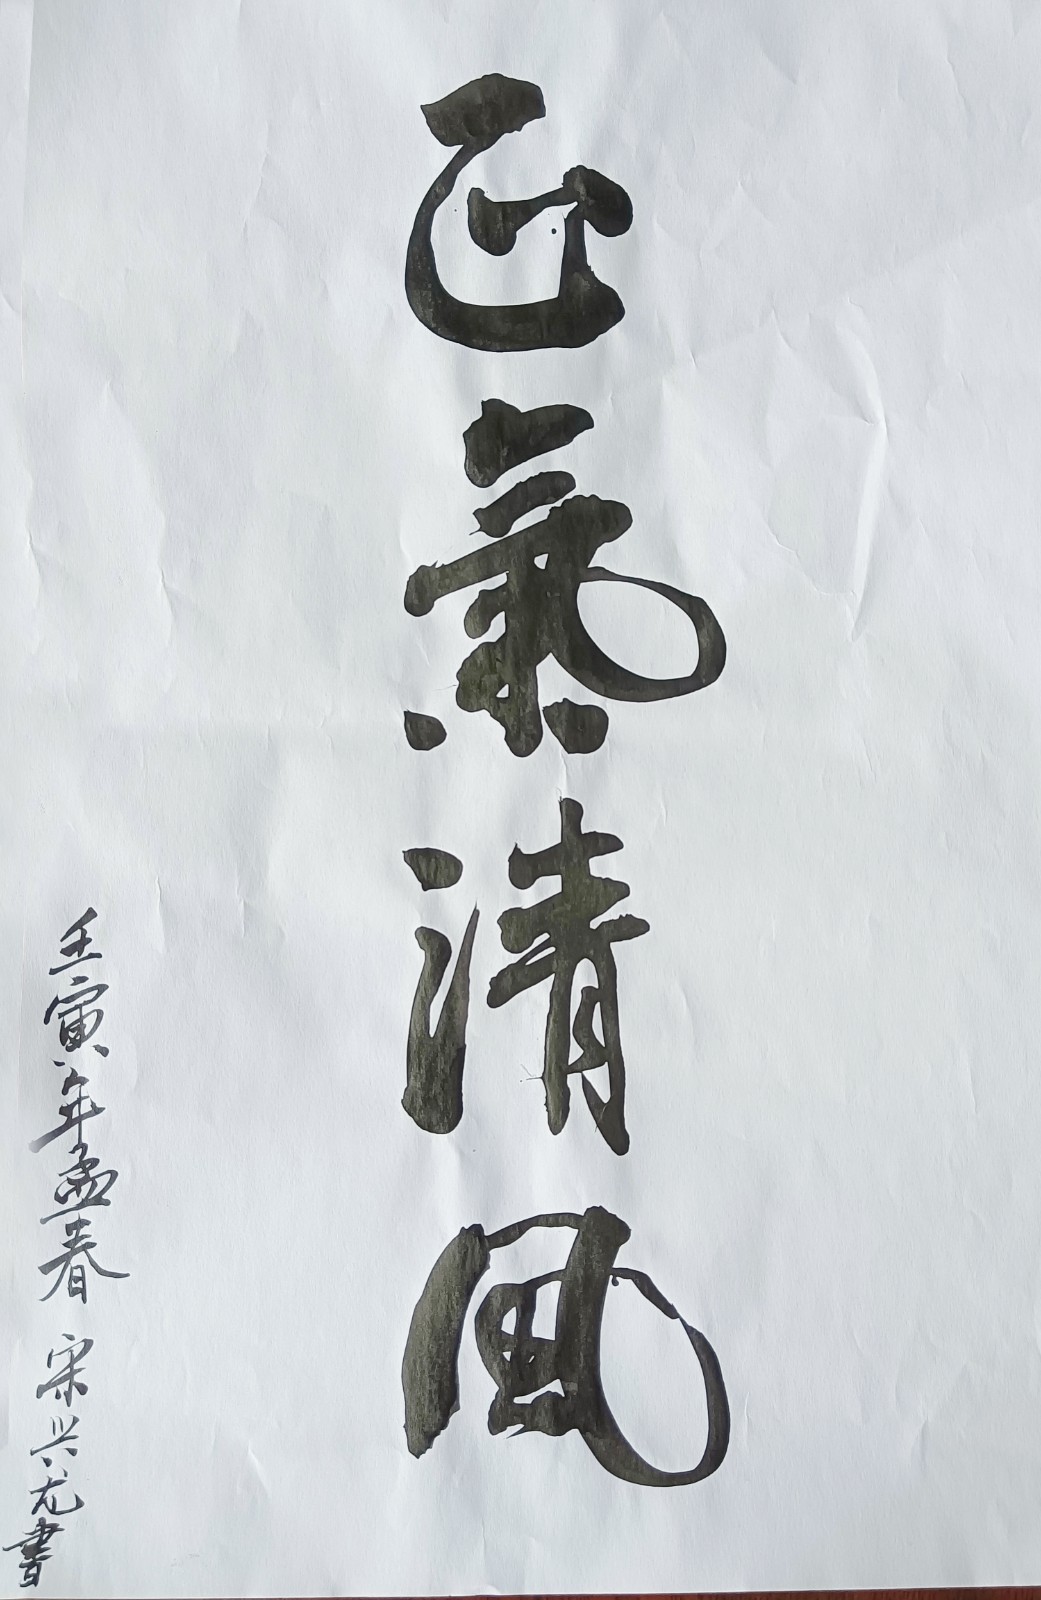 正氣清風
壬寅年孟春 宋兴龙書